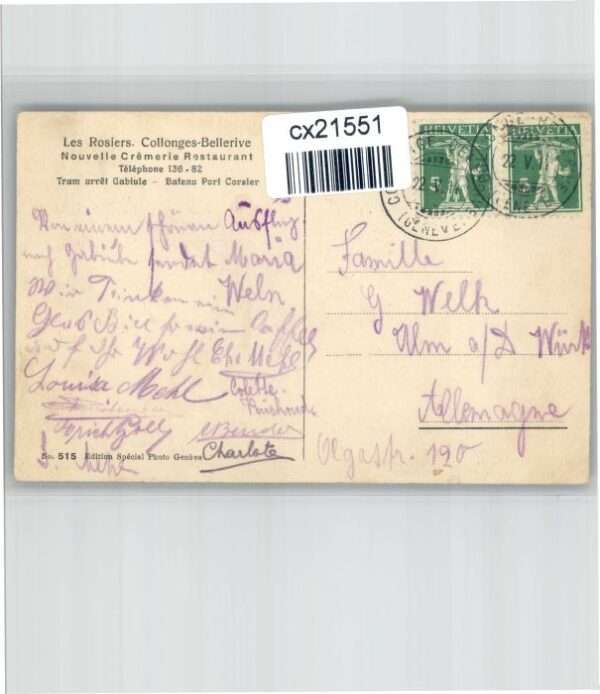 cx21551
Les Rosiers. Collonges-Bellerive
Nouvelle Crêmerie Restaurant
Téléphone 136-82
Tram arrêt Gabiule - Bateau Port Corsier
HELVETIA HELVETIA
5 5
22. V. 22. V.
(GENÈVE)
Von einem schönen Ausflug
nach Gabiule sendet Maria
Wir Trinken ein Welk
Glas Bier
auf Ihr Wohl Ehe. Mehl
Louisa Mehl
Colette
Charlote
No. 515 Edition Spécial Photo Genève
Famille
G Welk
Ulm a/D Würt
Allemagne
Olgastr. 120